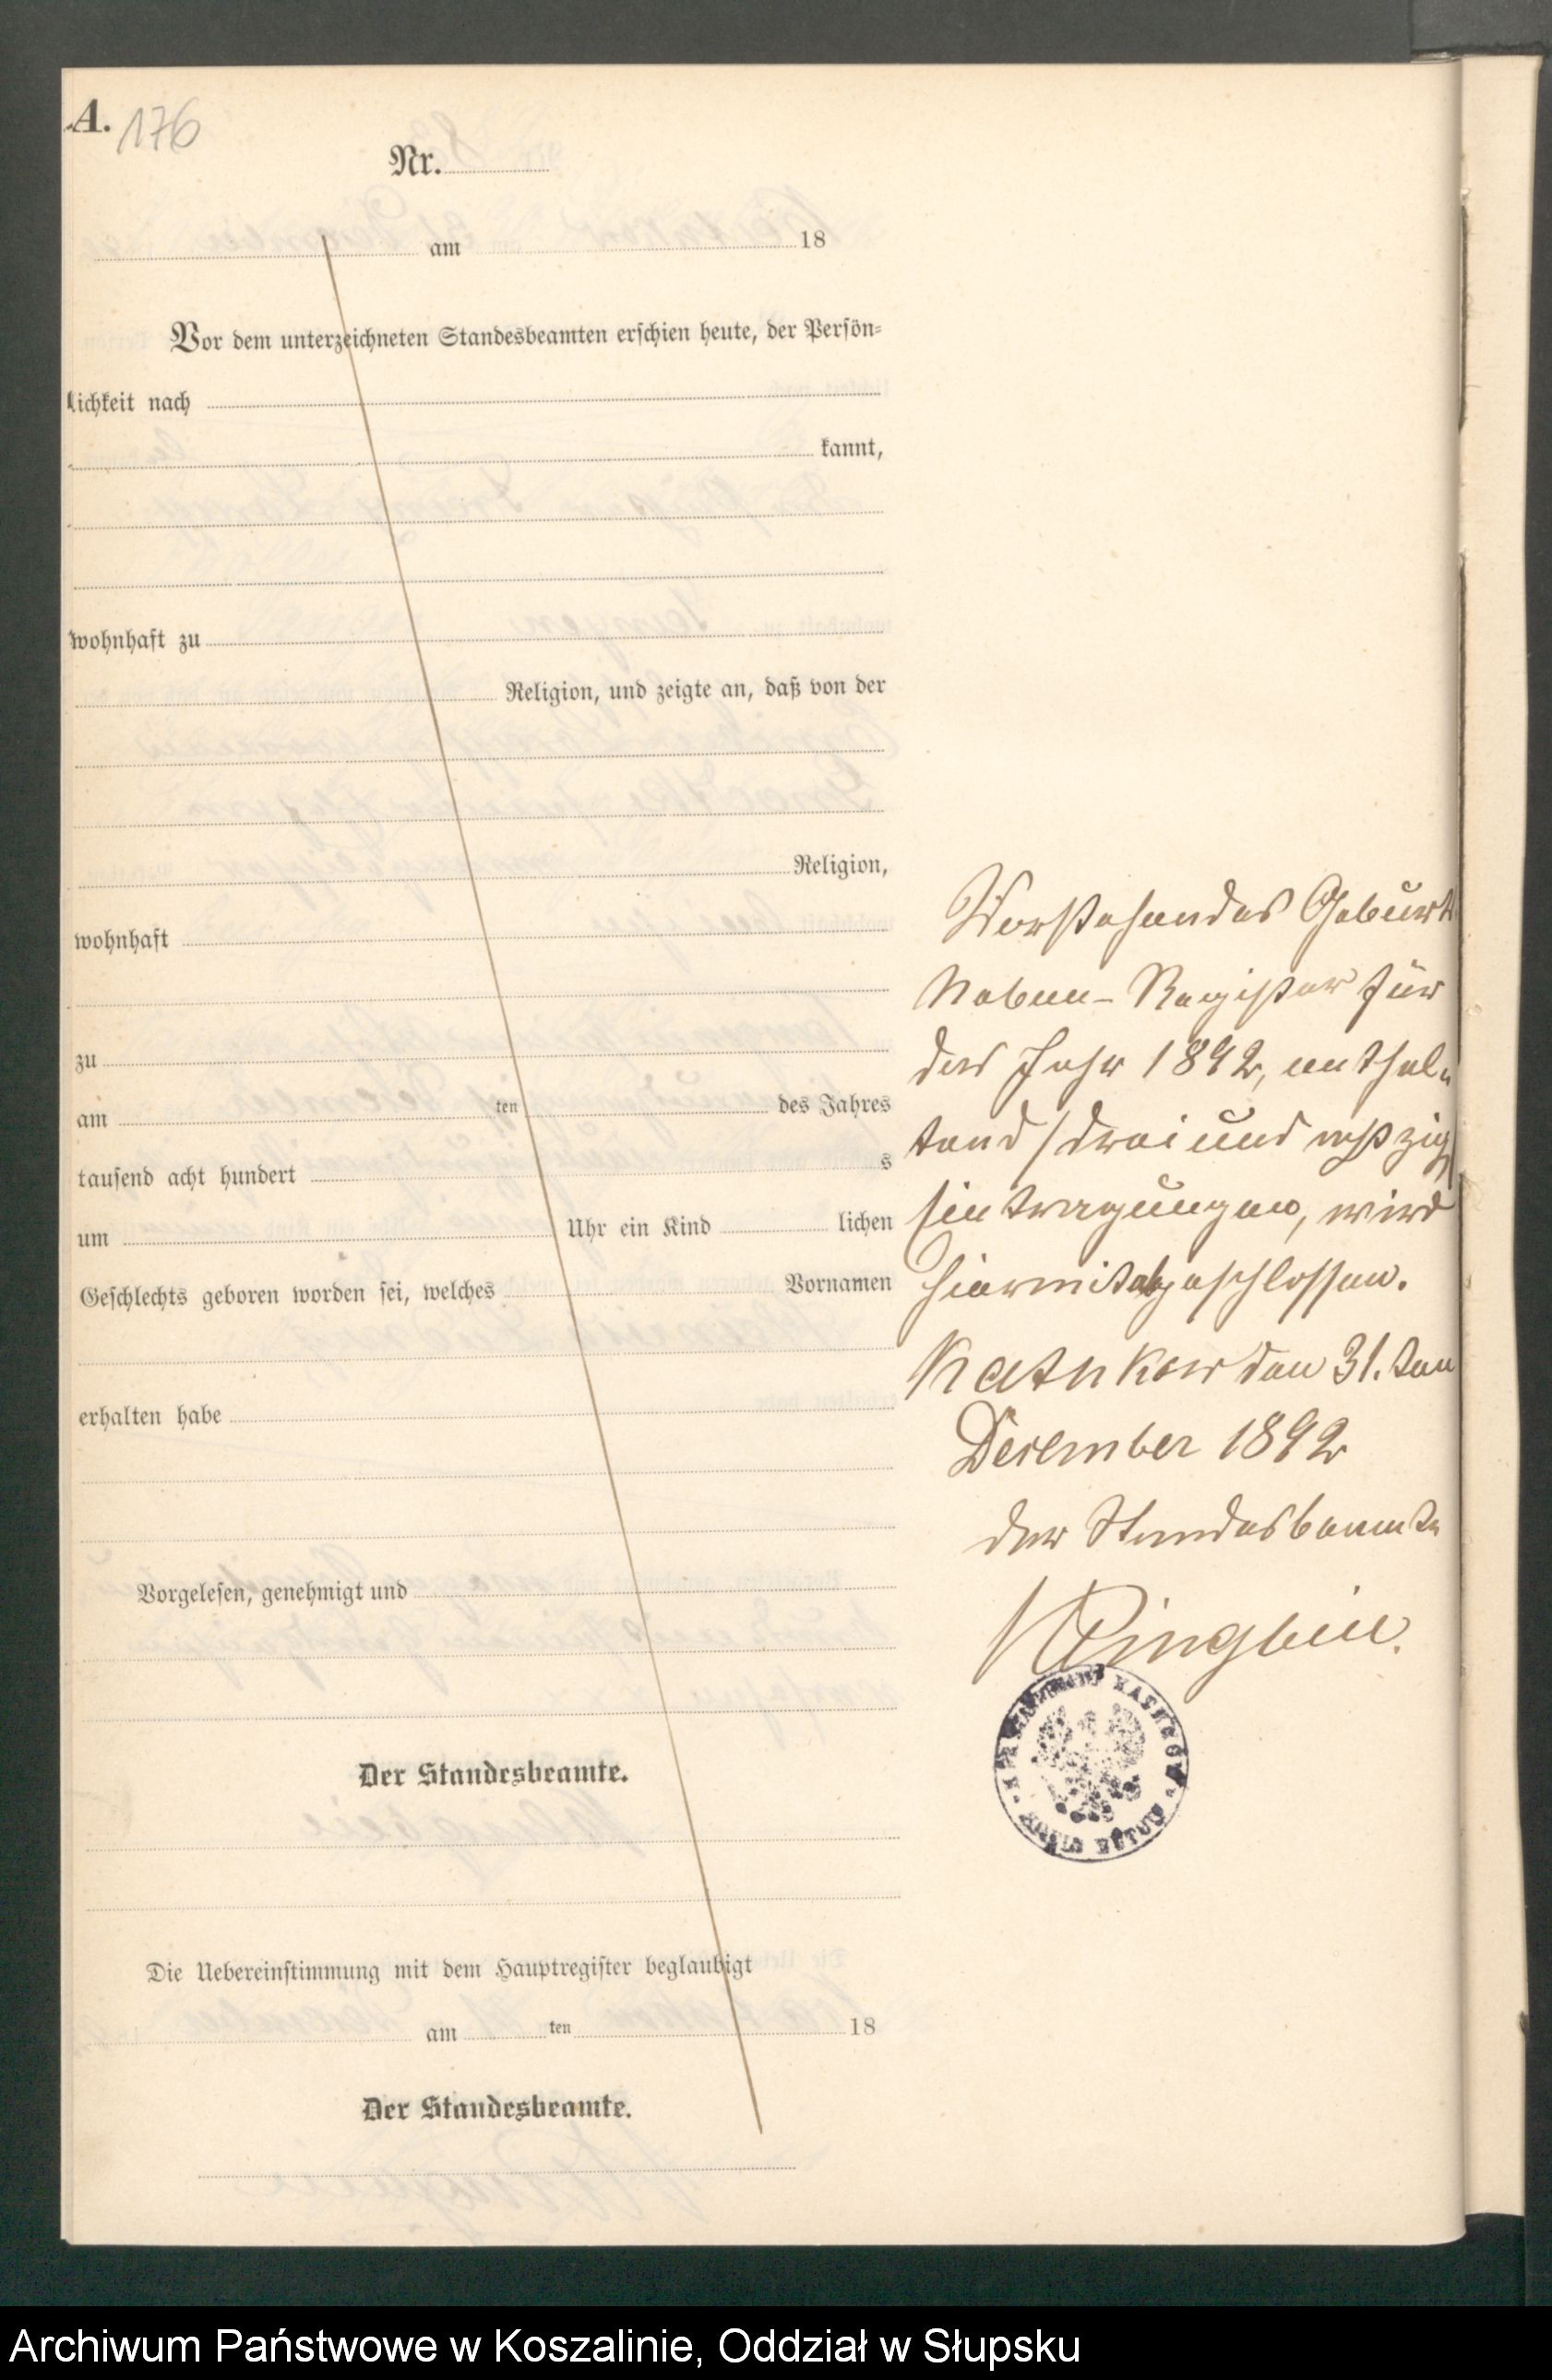 A. 176
Nr.
am 18
Vor dem unterzeichneten Standesbeamten erschien heute, der Persön=
lichkeit nach
kannt,
wohnhaft zu
Religion, und zeigte an, daß von der
Religion,
wohnhaft
zu
am ten des Jahres
tausend acht hundert s
um Uhr ein Kind lichen
Geschlechts geboren worden sei, welches Vornamen
erhalten habe
Vorgelesen, genehmigt und
Der Standesbeamte.
Die Uebereinstimmung mit dem Hauptregister beglaubigt
am ten 18
Der Standesbeamte.
Vorstehendes Geburts
Neben-Register für
das Jahr 1892, enthal-
tend / drei und achtzig
Eintragungen, wird
hiermit abgeschlossen.
Katnkow den 31. ten
Dezember 1892
Der Standesbeamte
KATHKOW
KREIS BÜTOW
Archiwum Państwowe w Koszalinie, Oddział w Słupsku